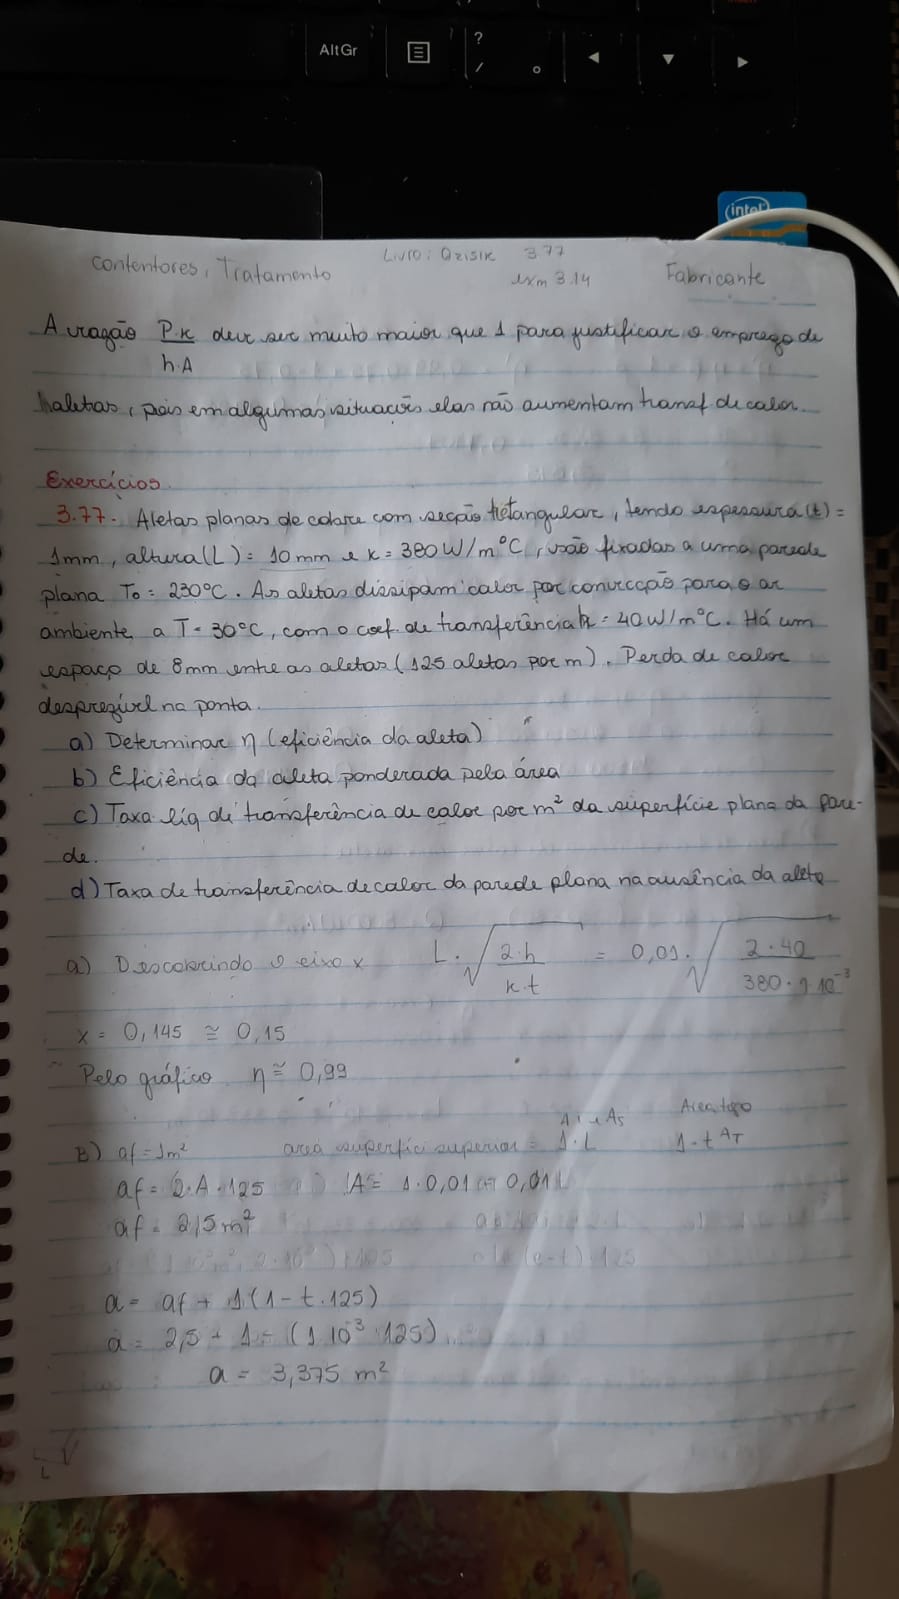 AltGr
?
/
intel
Contentores, Tratamento
Livro: Ozisik 3.77
exm 3.14
Fabricante
A razão P.k deve ser muito maior que 1 para justificar o emprego de
h.A
aletas, pois em algumas situações elas não aumentam transf de calor.
Exercícios.
3.77. Aletas planas de cobre com secção retangular, tendo espessura (t) =
1mm, altura (L) = 10 mm e k = 380 W/m°C, são fixadas a uma parede
plana T₀ = 230°C. As aletas dissipam calor por convecção para o ar
ambiente a T = 30°C, com o coef. de transferência h = 40 W/m°C. Há um
espaço de 8mm entre as aletas (125 aletas por m). Perda de calor
desprezível na ponta.
a) Determinar η (eficiência da aleta)
b) Eficiência da aleta ponderada pela área
c) Taxa líq de transferência de calor por m² da superfície plana da pare-
de.
d) Taxa de transferência de calor da parede plana na ausência da aleta
a) Descobrindo o eixo x L. √ 2.h = 0,01. √ 2.40
k.t 380.1.10⁻³
x = 0,145 ≅ 0,15
Pelo gráfico η ≅ 0,99
As Area topo
B) af = 1m² area superfíci superior = 1.L 1.t AT
af = 2.A.125 A = 1.0,01 0,01
af = 2,5 m²
a = af + 1(1 - t.125)
a = 2,5 + 1 - (1.10⁻³.125)
a = 3,375 m²
L